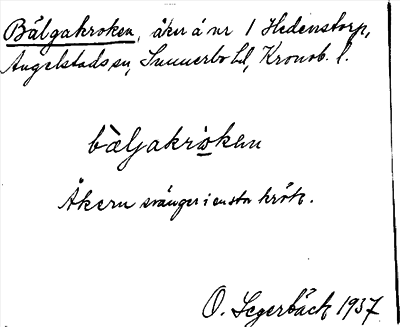 Bälgakroken, åker å nr 1 Hedenstorp,
Angelstads sn, Sunnerbo hd, Kronob. l.
bàljakròkan
Åkern svänger i en stor krök.
O. Segerbäck 1937